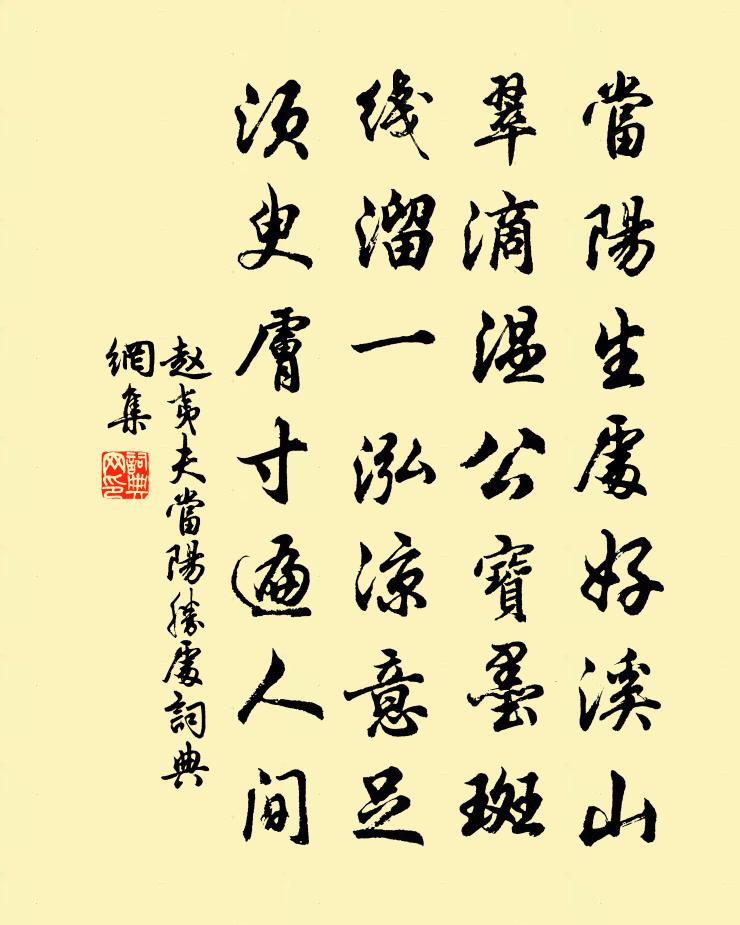 當陽生處好溪山
翠滴温公寶墨斑
綫溜一泓凉意足
须臾膚寸遍人间
赵夷夫當陽勝處詞典
網集
詞典网印